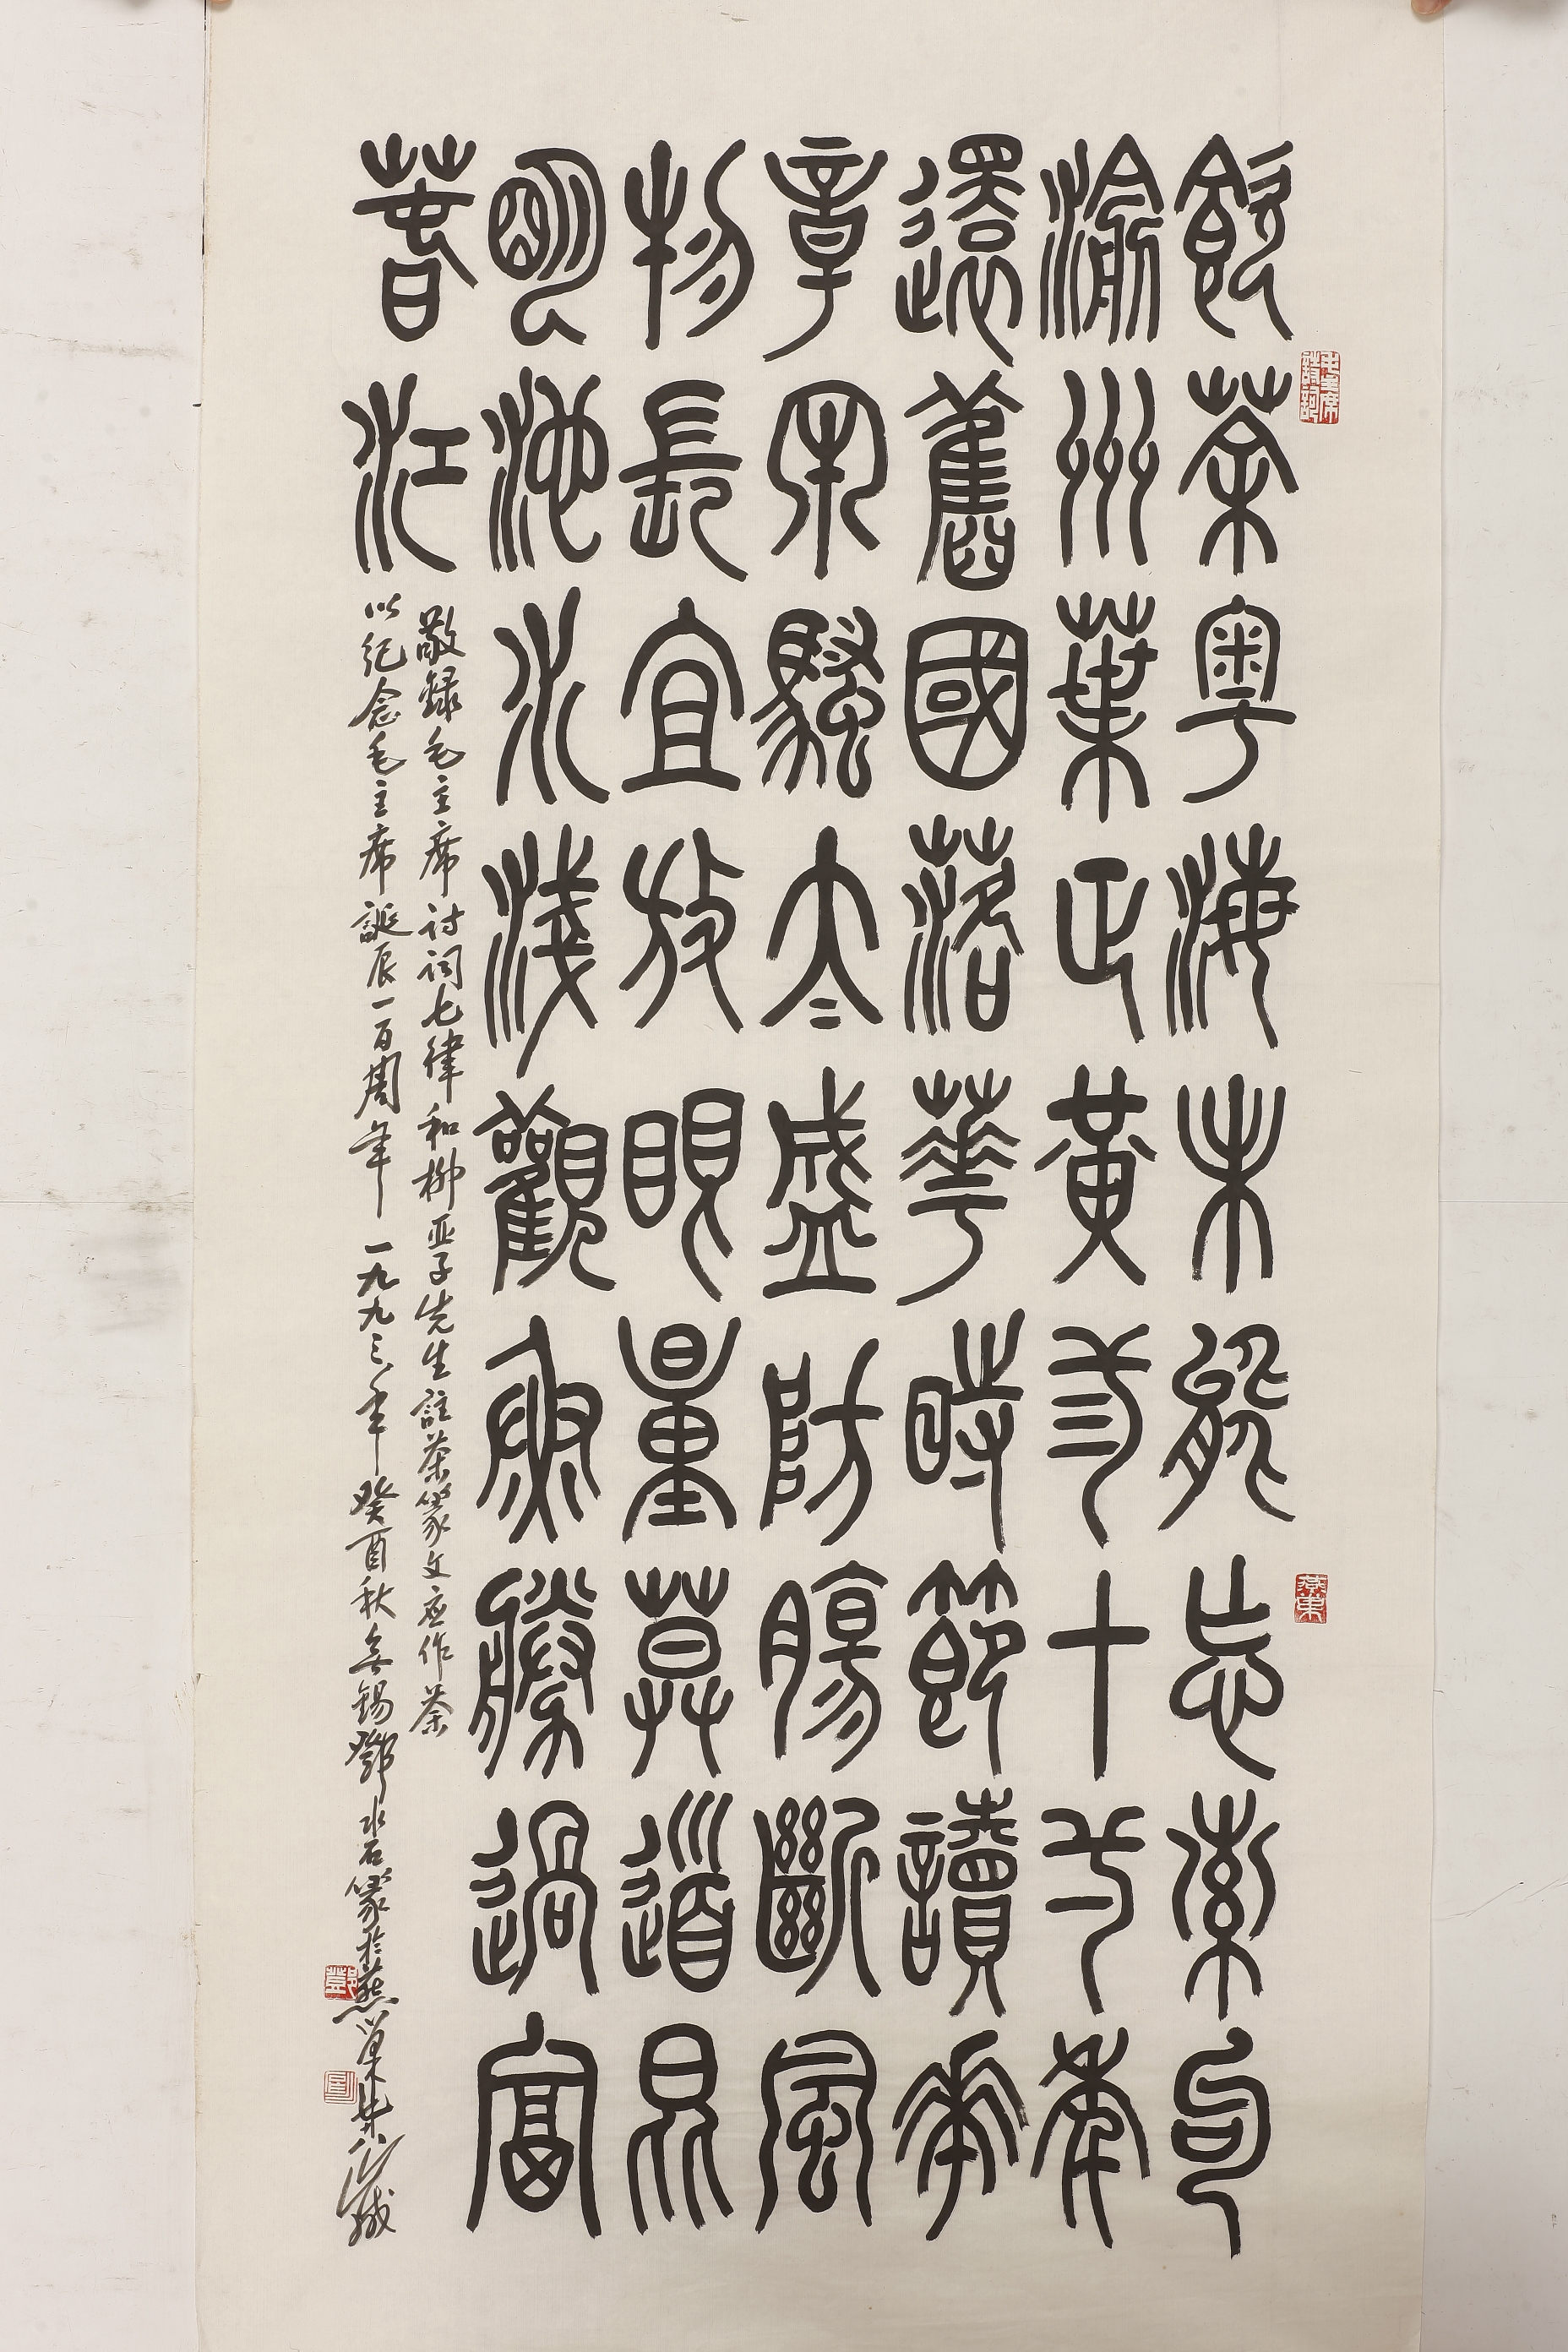 飲荼粵海未能忘索句
渝州葉正黃弎十弌年
還舊國落華時節讀華
章牢騷太盛防腸斷風
物長宜放眼量莫道昆
明池水淺觀魚勝過富
萅江
敬録毛主席诗词七律和柳亚子先生註茶篆文应作荼
以纪念毛主席誕辰一百周年一九九三年癸酉秋无锡鄧水石篆於燕巢
毛主席詩詞
鄧